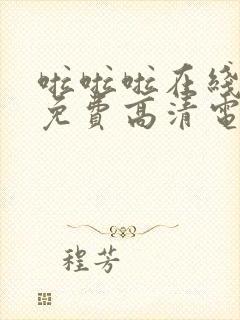 啦啦啦在线
免費高清電
程芳